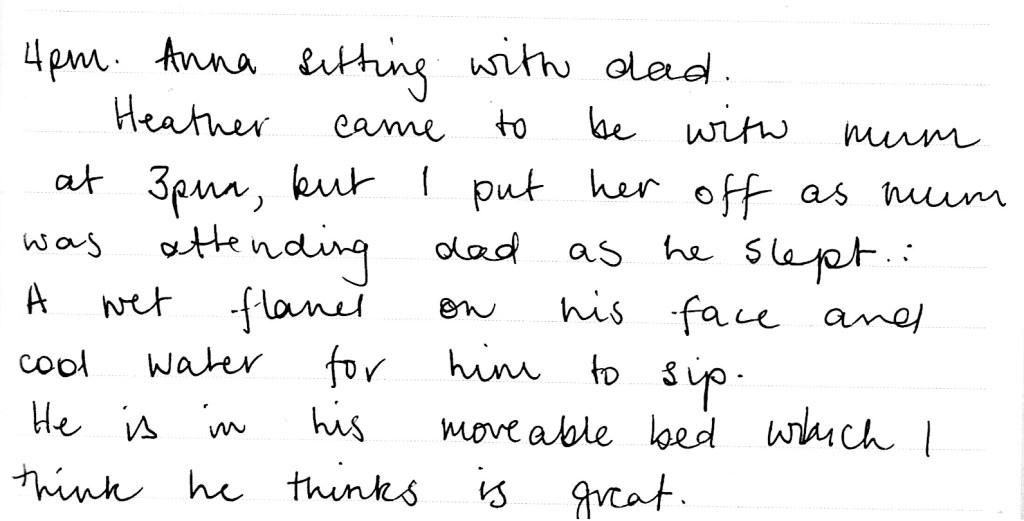 4pm. Anna sitting with dad.
Heather came to be with mum
at 3pm, but I put her off as mum
was attending dad as he slept.:
A wet flanel on his face and
cool water for him to sip.
He is in his moveable bed which I
think he thinks is great.